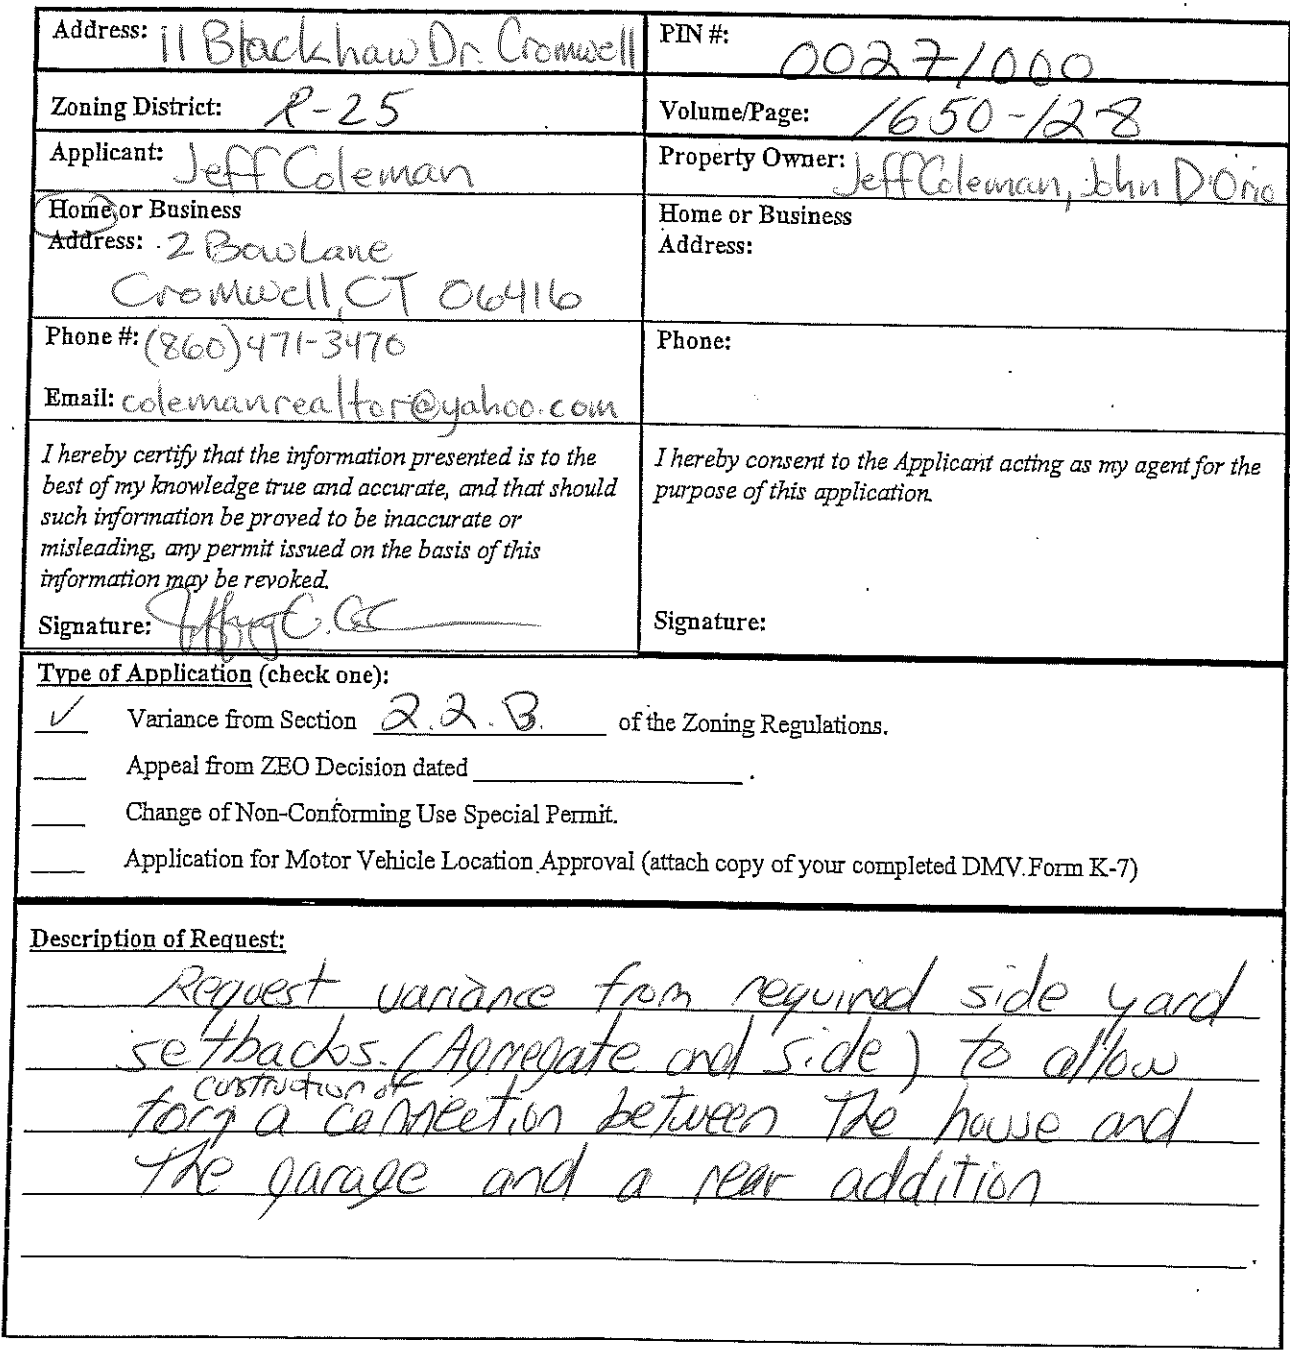 Address: 11 Blackhaw Dr. Cromwell
PIN #: 00271000
Zoning District: R-25
Volume/Page: 1650-128
Applicant: Jeff Coleman
Property Owner: Jeff Coleman, John D'Orio
Home or Business
Address: 2 Bow Lane
Cromwell, CT 06416
Home or Business
Address:
Phone #: (860) 471-3470
Email: colemanrealtor@yahoo.com
Phone:
I hereby certify that the information presented is to the
best of my knowledge true and accurate, and that should
such information be proved to be inaccurate or
misleading, any permit issued on the basis of this
information may be revoked.
Signature:
I hereby consent to the Applicant acting as my agent for the
purpose of this application.
Signature:
Type of Application (check one):
✓ Variance from Section 2.2.B. of the Zoning Regulations.
Appeal from ZEO Decision dated .
Change of Non-Conforming Use Special Permit.
Application for Motor Vehicle Location Approval (attach copy of your completed DMV Form K-7)
Description of Request:
Request variance from required side yard
setbacks. (Agregate and side) to allow
construction of
for a connection between the house and
the garage and a rear addition